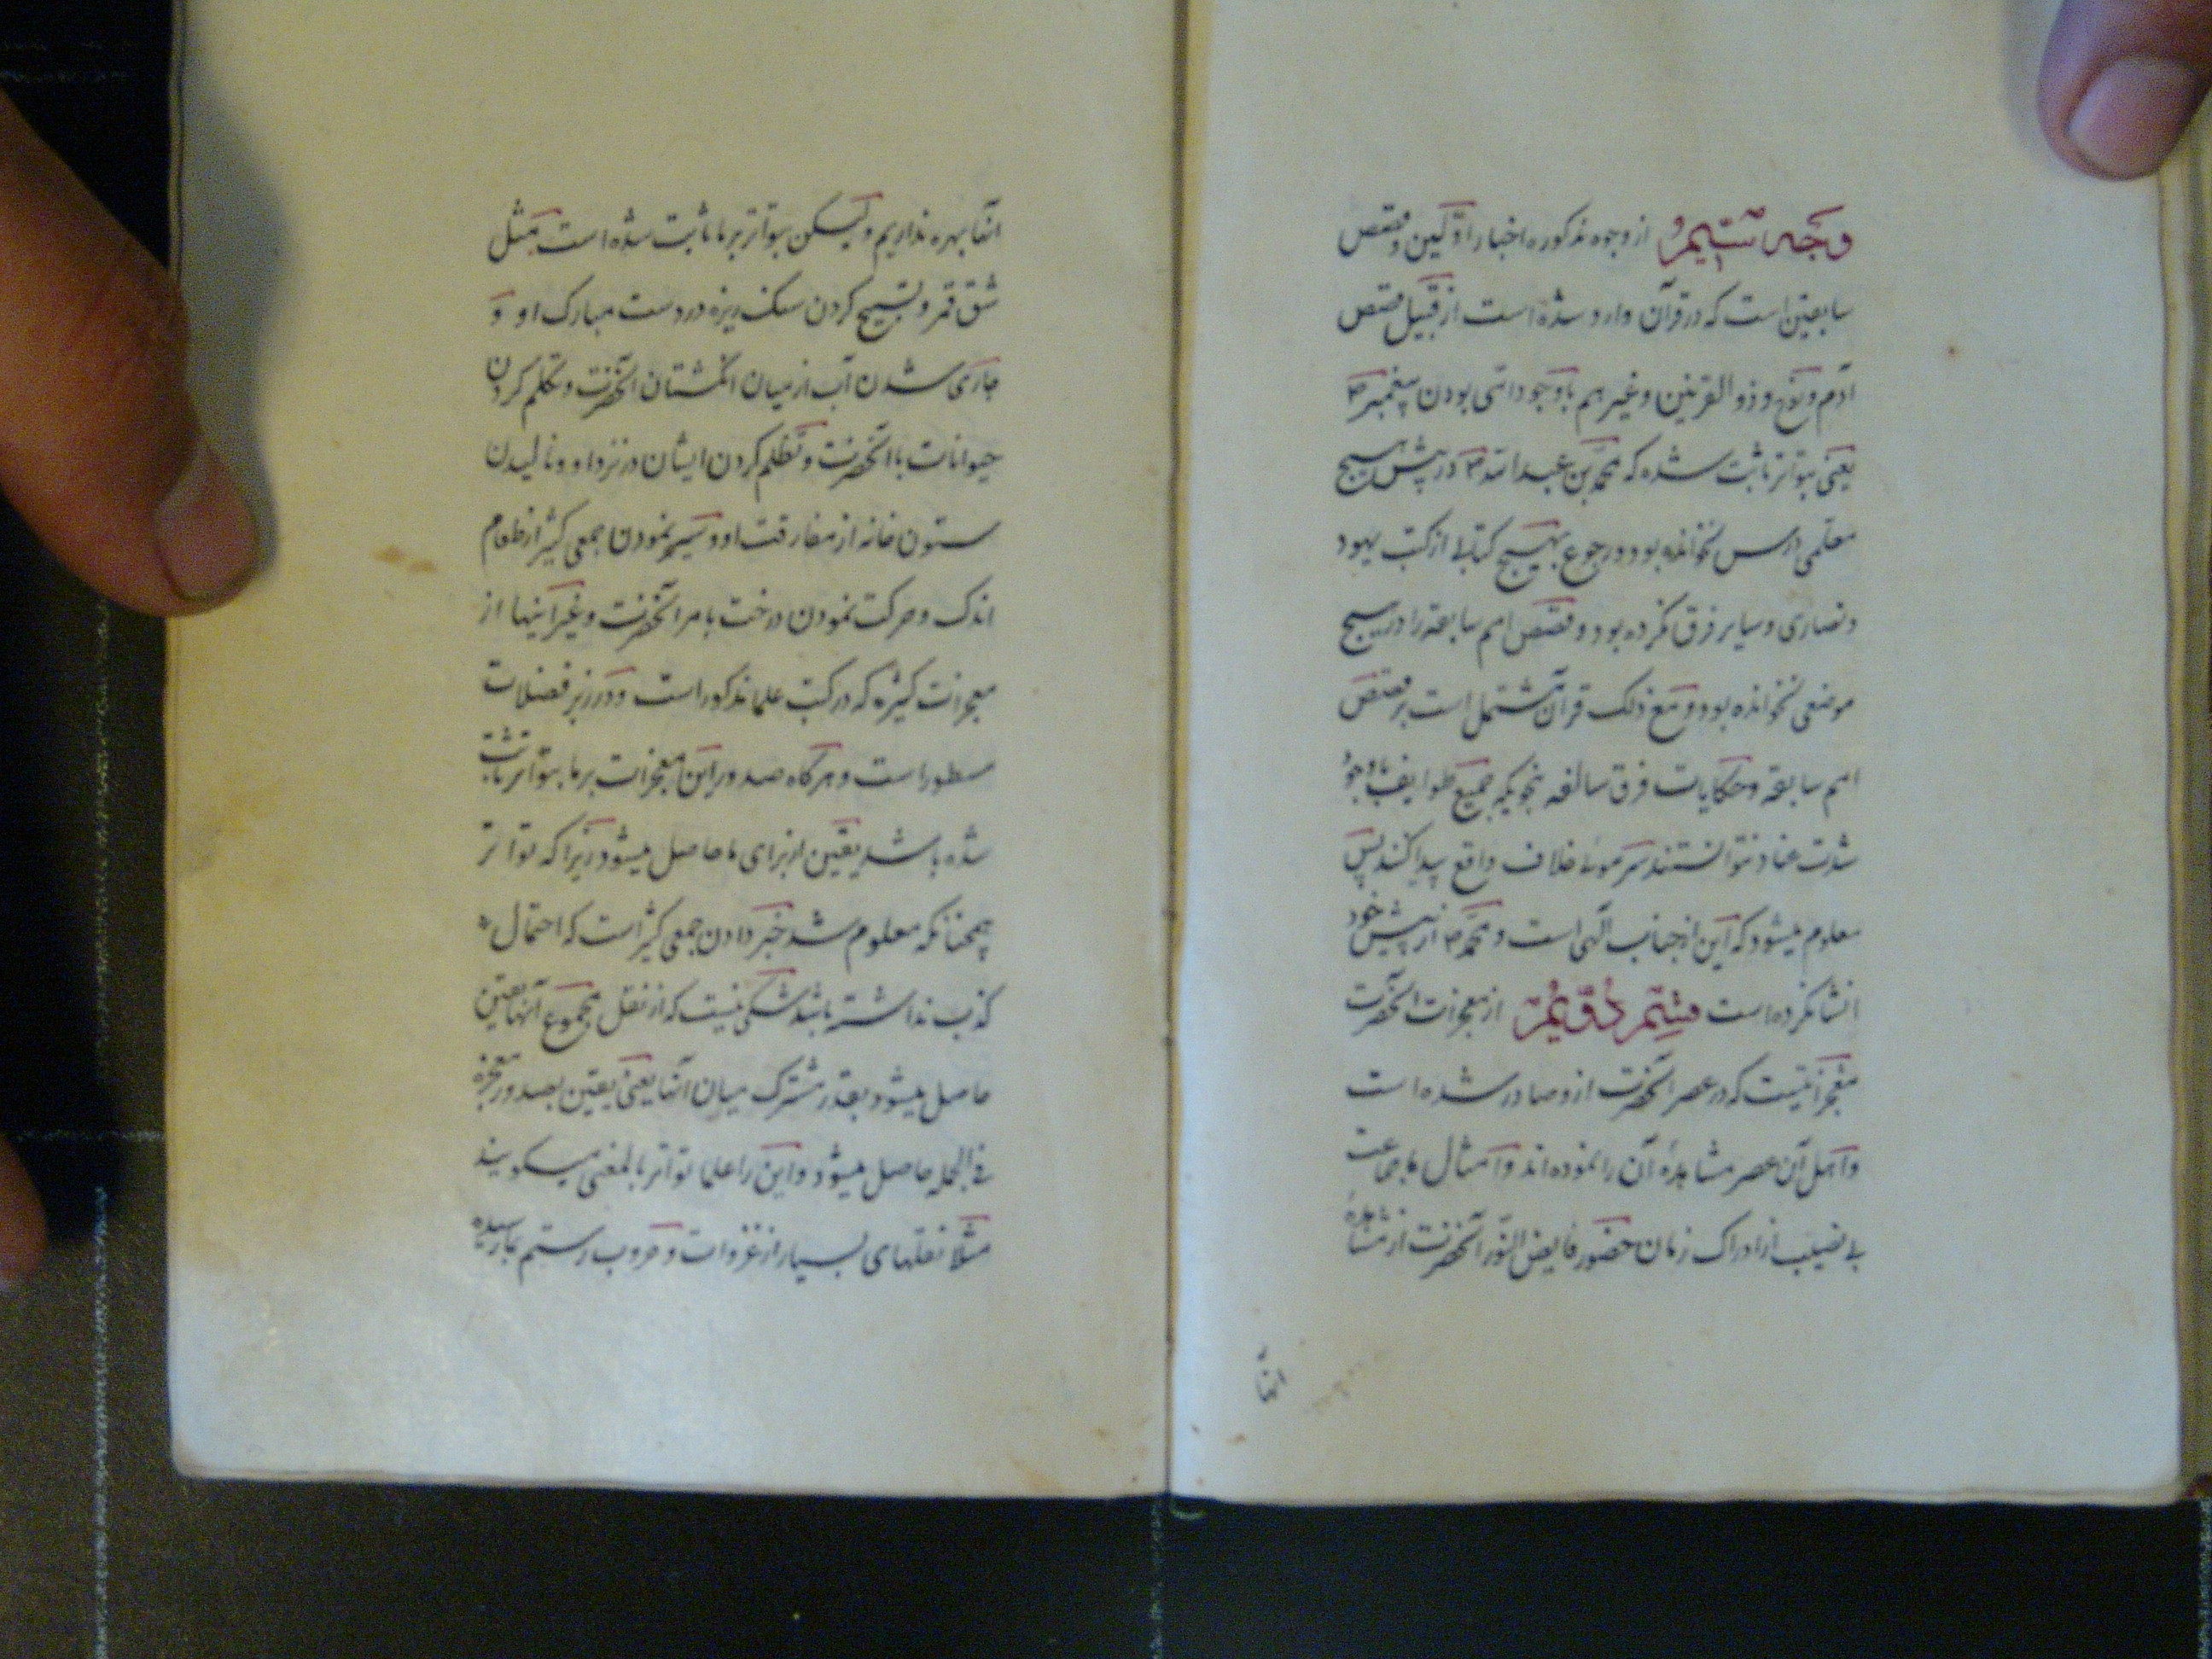 وجه ششم از وجوه مذکوره اخبار اولین و قصص
سابقین است که در قرآن وارد شده است از قبیل قصص
آدم و نوح و ذو القرنین و غیر هم با وجود امی بودن پیغمبر ص
یعنی بتواتر ثابت شده که محمد بن عبد الله ص در پیش هیچ
معلمی درس نخوانده بود و رجوع بهیچ کتابی از کتب یهود
و نصاری و سایر فرق نکرده بود و قصص امم سابقه را در هیچ
موضعی نخوانده بود و مع ذلک قرآن مشتمل است بر قصص
امم سابقه و حکایات فرق سالفه بنحویکه جمیع طوایف با وجود
شدت عناد نتوانستند سر موئ خلاف واقع پیدا کنند پس
معلوم میشود که این از جناب الهی است و محمد ص از پیش خود
انشا نکرده است قسم دویم از معجزات آنحضرت
معجزاتیست که در عصر آنحضرت ازو صادر شده است
و اهل آن عصر مشاهدهٔ آن را نموده اند و امثال ما جماعت
بی نصیب از ادراک زمان حضور فایض النور آنحضرت از مشاهدهٔ
آنها
آنها بهره نداریم و لیکن بتواتر بر ما ثابت شده است مثل
شق قمر و تسبیح کردن سنک ریزه در دست مبارک او و
جاری شدن آب از میان انکشتان آنحضرت و تکلم کردن
حیوانات با آنحضرت و تظلم کردن ایشان در نزد او و نالیدن
ستون خانه از مفارقت او و سیر نمودن جمعی کثیر از طعام
اندک و حرکت نمودن درخت بامر آنحضرت و غیر اینها از
معجزات کثیره که در کتب علما مذکور است و در زبر فضلات
مسطور است و هرکاه صدور این معجزات بر ما بتواتر ثابت
شده باشد یقین از برای ما حاصل میشود زیرا که تواتر
همچنانکه معلوم شد خبر دادن جمعی کثیر است که احتمال
کذب نداشته باشد شکی نیست که از نقل مجموع آنها یقین
حاصل میشود بقدر مشترک میان آنها یعنی یقین بصدور معجزه
فی الجمله حاصل میشود و این را علما تواتر بالمعنی میکویند
مثلا نقلهای بسیار از غزوات و حروب رستم بما رسیده